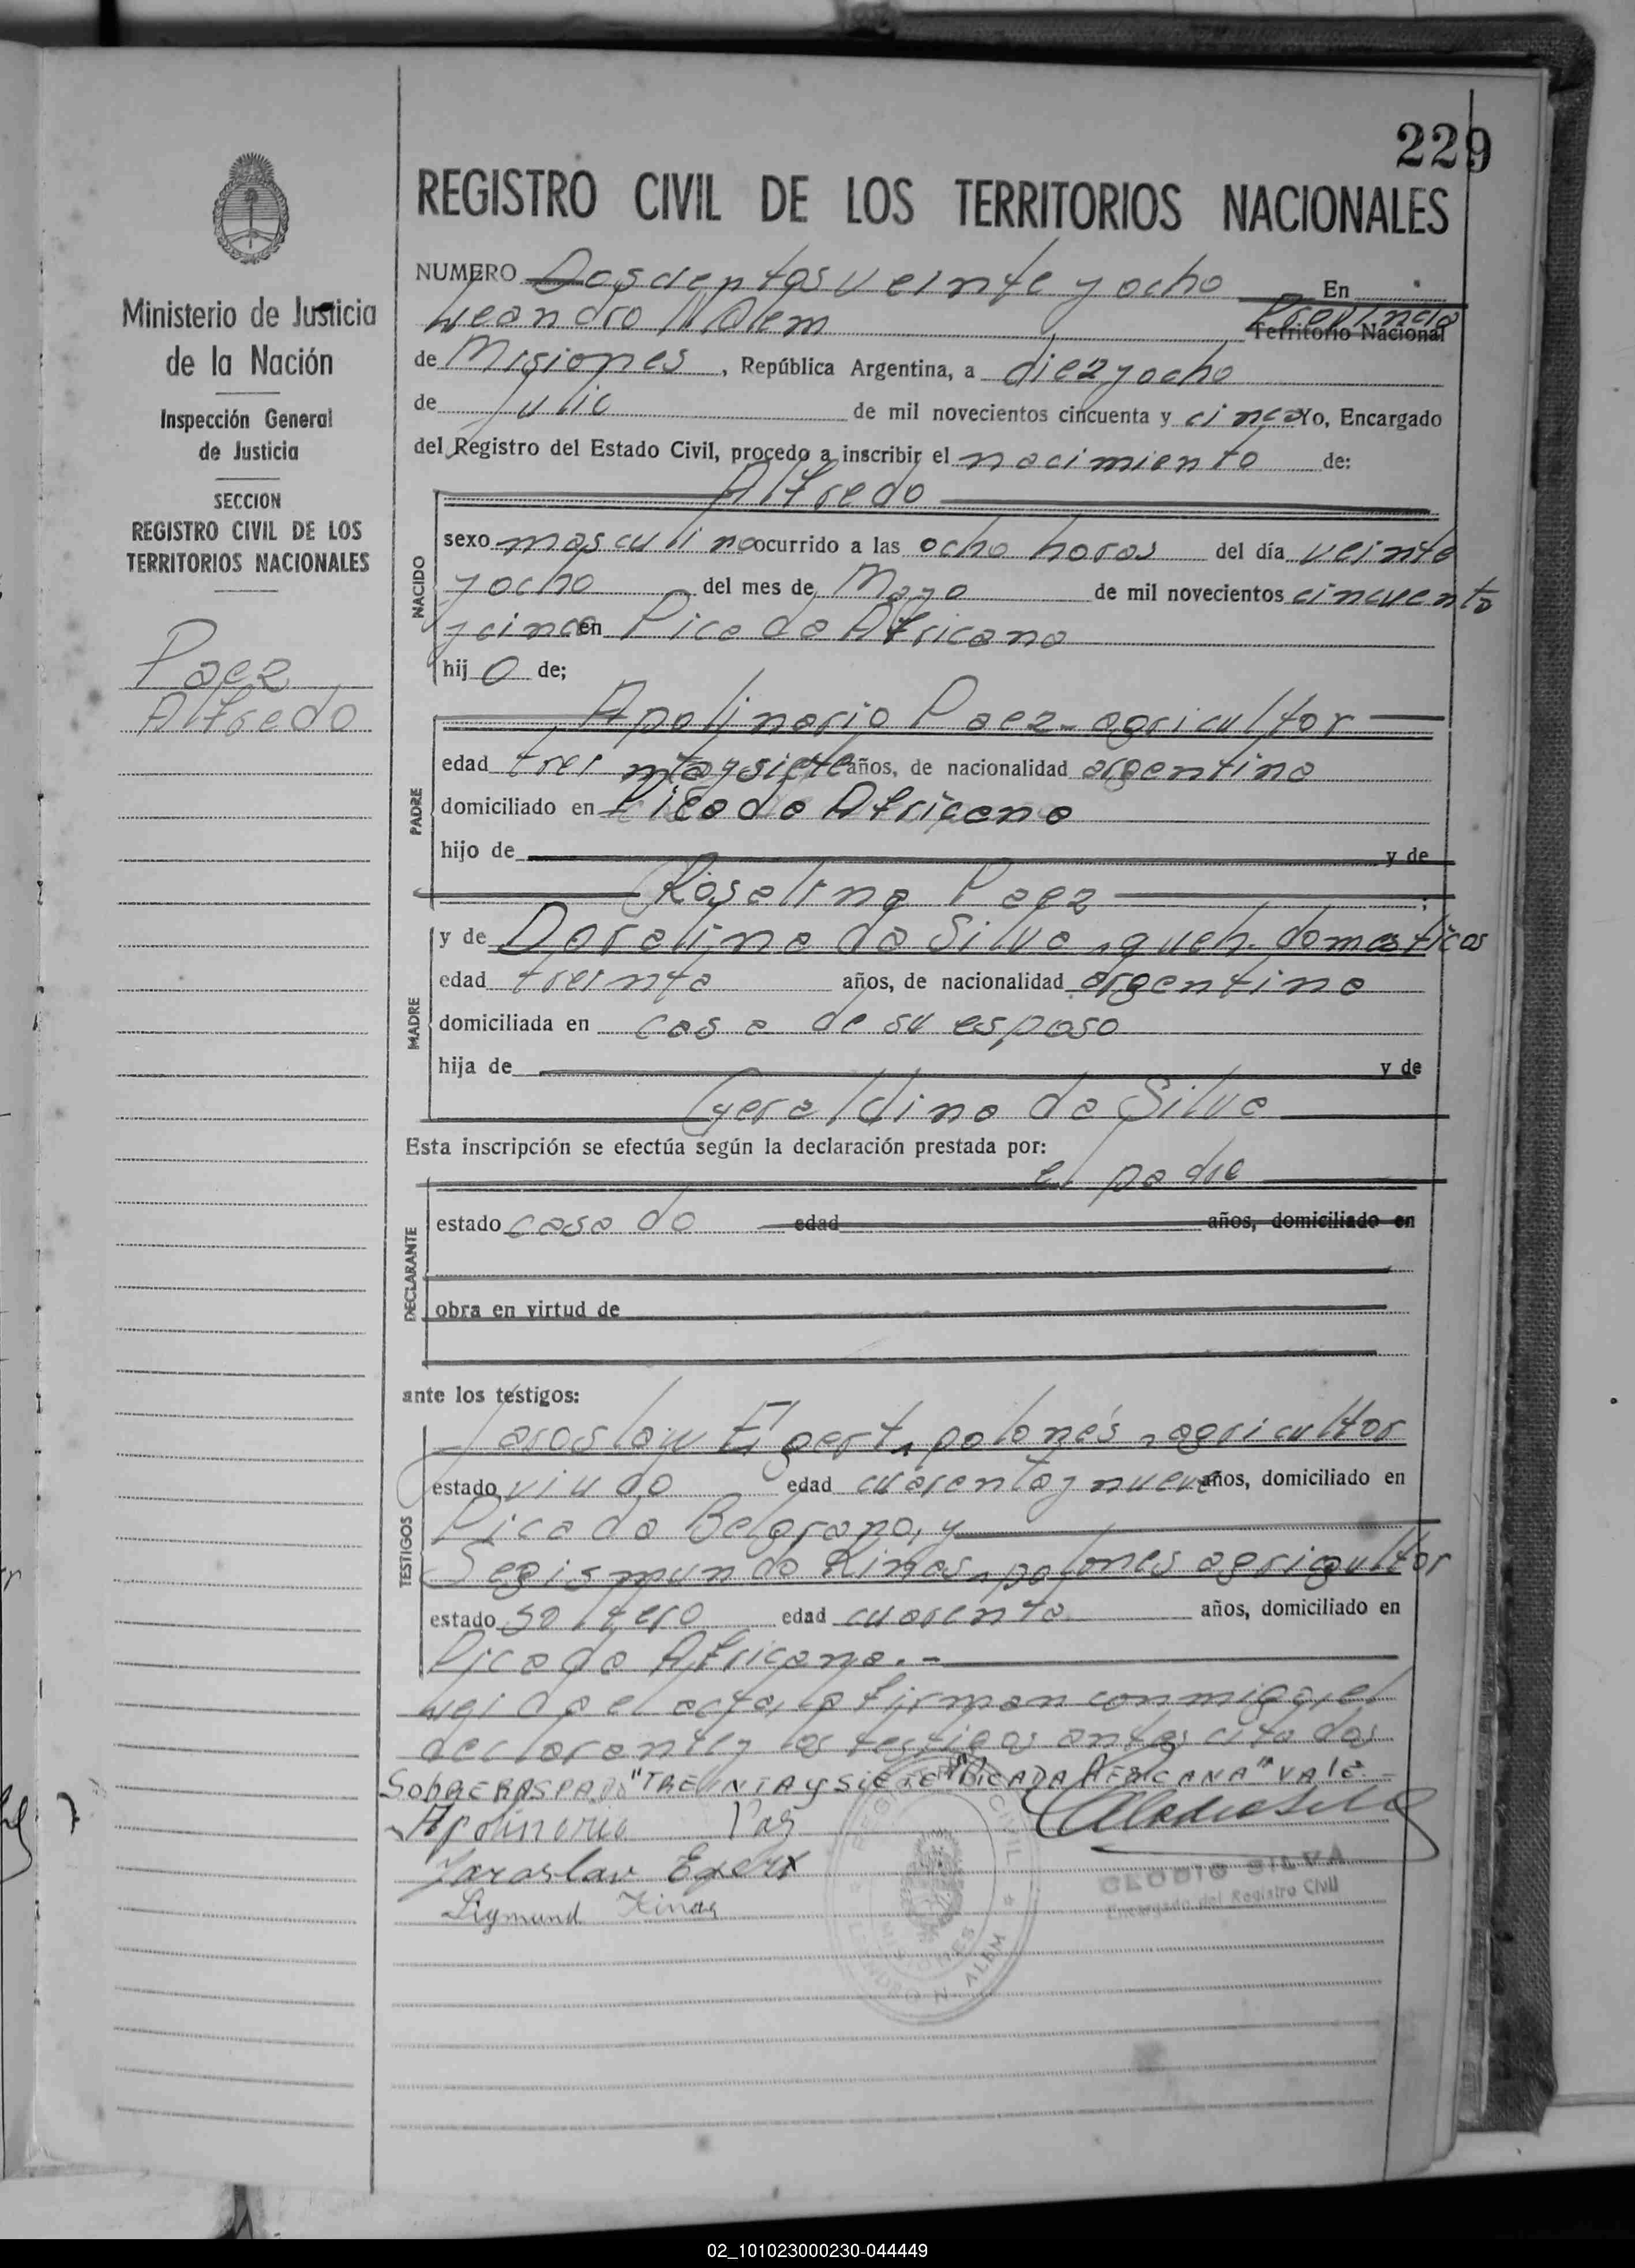 229
REGISTRO CIVIL DE LOS TERRITORIOS NACIONALES
Ministerio de Justicia
de la Nación
Inspección General
de Justicia
SECCION
REGISTRO CIVIL DE LOS
TERRITORIOS NACIONALES
Paez
Alfredo
NUMERO Doscientos veinte y ocho En
Leandro N Alem Provincia
Territorio Nacional
de Misiones, República Argentina, a diez y ocho
de Julio de mil novecientos cincuenta y cinco Yo, Encargado
del Registro del Estado Civil, procedo a inscribir el nacimiento de:
NACIDO
Alfredo
sexo masculino ocurrido a las ocho horas del día veinte
y ocho del mes de Mayo de mil novecientos cincuenta
y cinco en Picada Africana
hijo de;
PADRE
Apolinario Paez - agricultor
edad treintaysiete años, de nacionalidad argentina
domiciliado en Picada Africana
hijo de y de
Roselina Paez ;
MADRE
y de Doralina da Silva, queh. domesticos
edad treinta años, de nacionalidad argentina
domiciliada en casa de su esposo
hija de y de
Geraldina da Silva
Esta inscripción se efectúa según la declaración prestada por:
DECLARANTE
el padre
estado casado edad años, domiciliado en
obra en virtud de
ante los testigos:
TESTIGOS
Jaroslaw Egert, polonés, agricultor
estado viudo edad cuarentay nueve años, domiciliado en
Picada Belgrano, y
Segismundo Kinas, polones agricultor
estado soltero edad cuarenta años, domiciliado en
Picada Africana.-
Leida el acta, la firman conmigo, el
declarante y los testigos antes citados
SOBRERASPADO "TREINTA Y SIETE" "PICADA AFRICANA" VALE -
Apolinario Paz
Jaroslaw Egert
Zigmund Kinas
REGISTRO CIVIL
MISIONES
LEANDRO N. ALEM
CLODIO SILVA
Encargado del Registro Civil
02_101023000230-044449